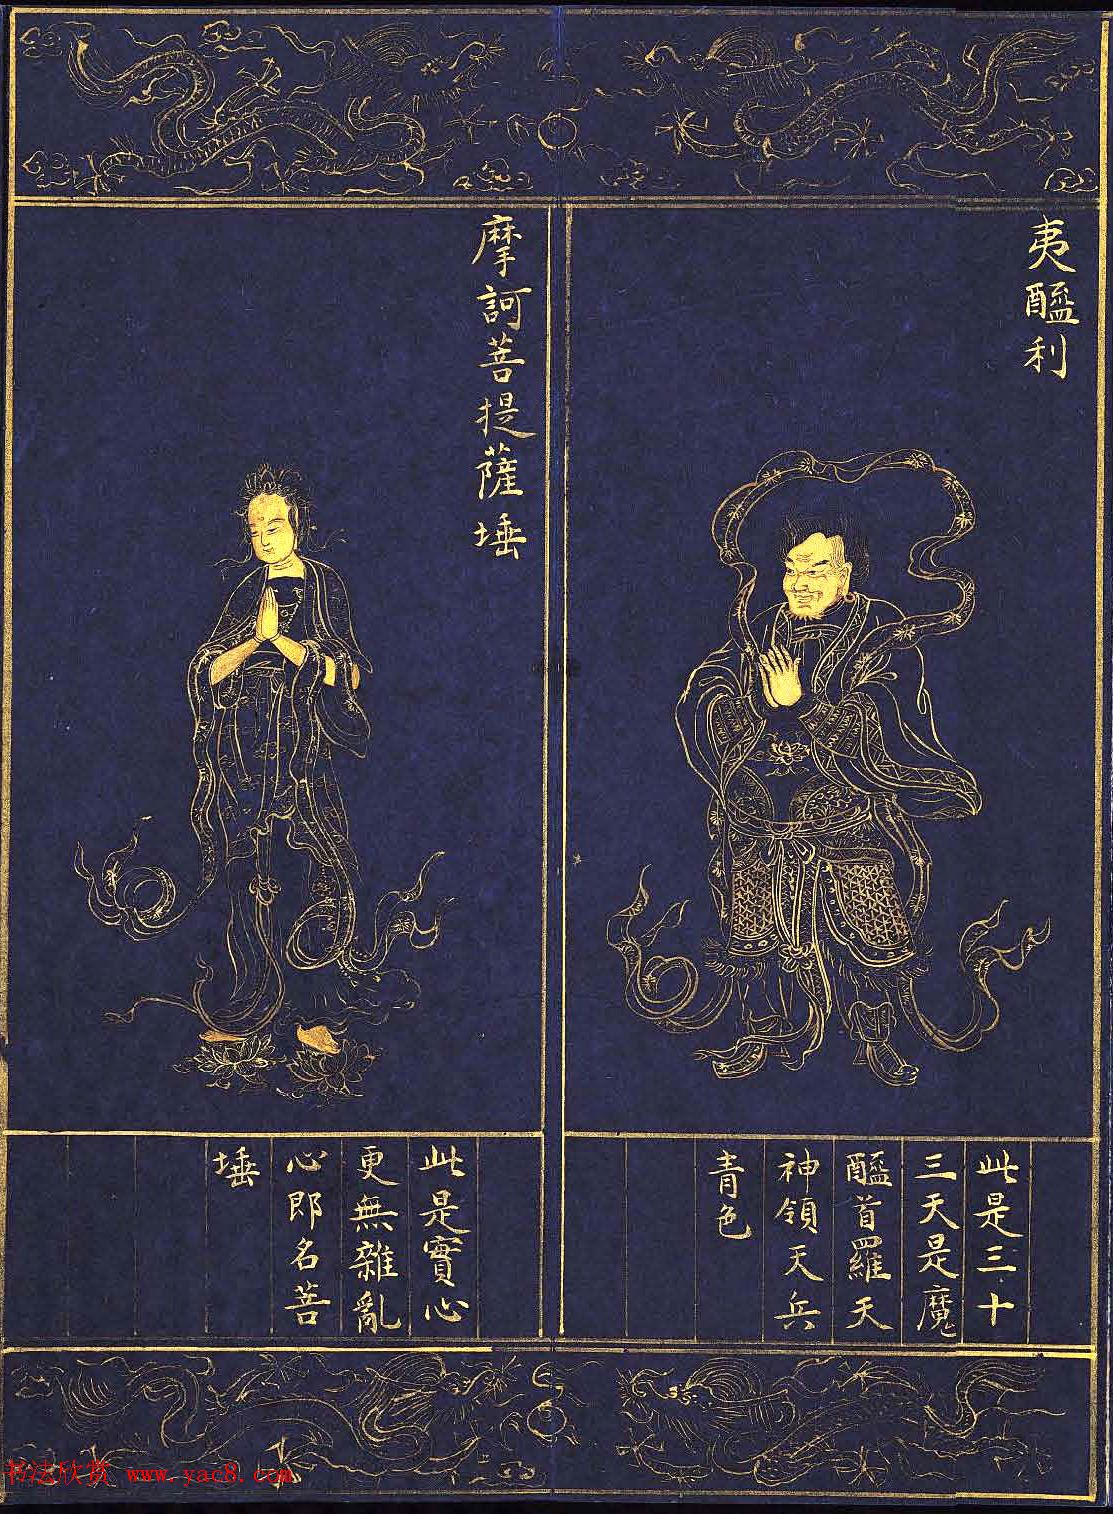 夷醯利
此是三十
三天是魔
醯首羅天
神領天兵
青色
摩訶菩提薩埵
此是實心
更無雜亂
心即名菩
埵
书法欣赏 www.yac8.com